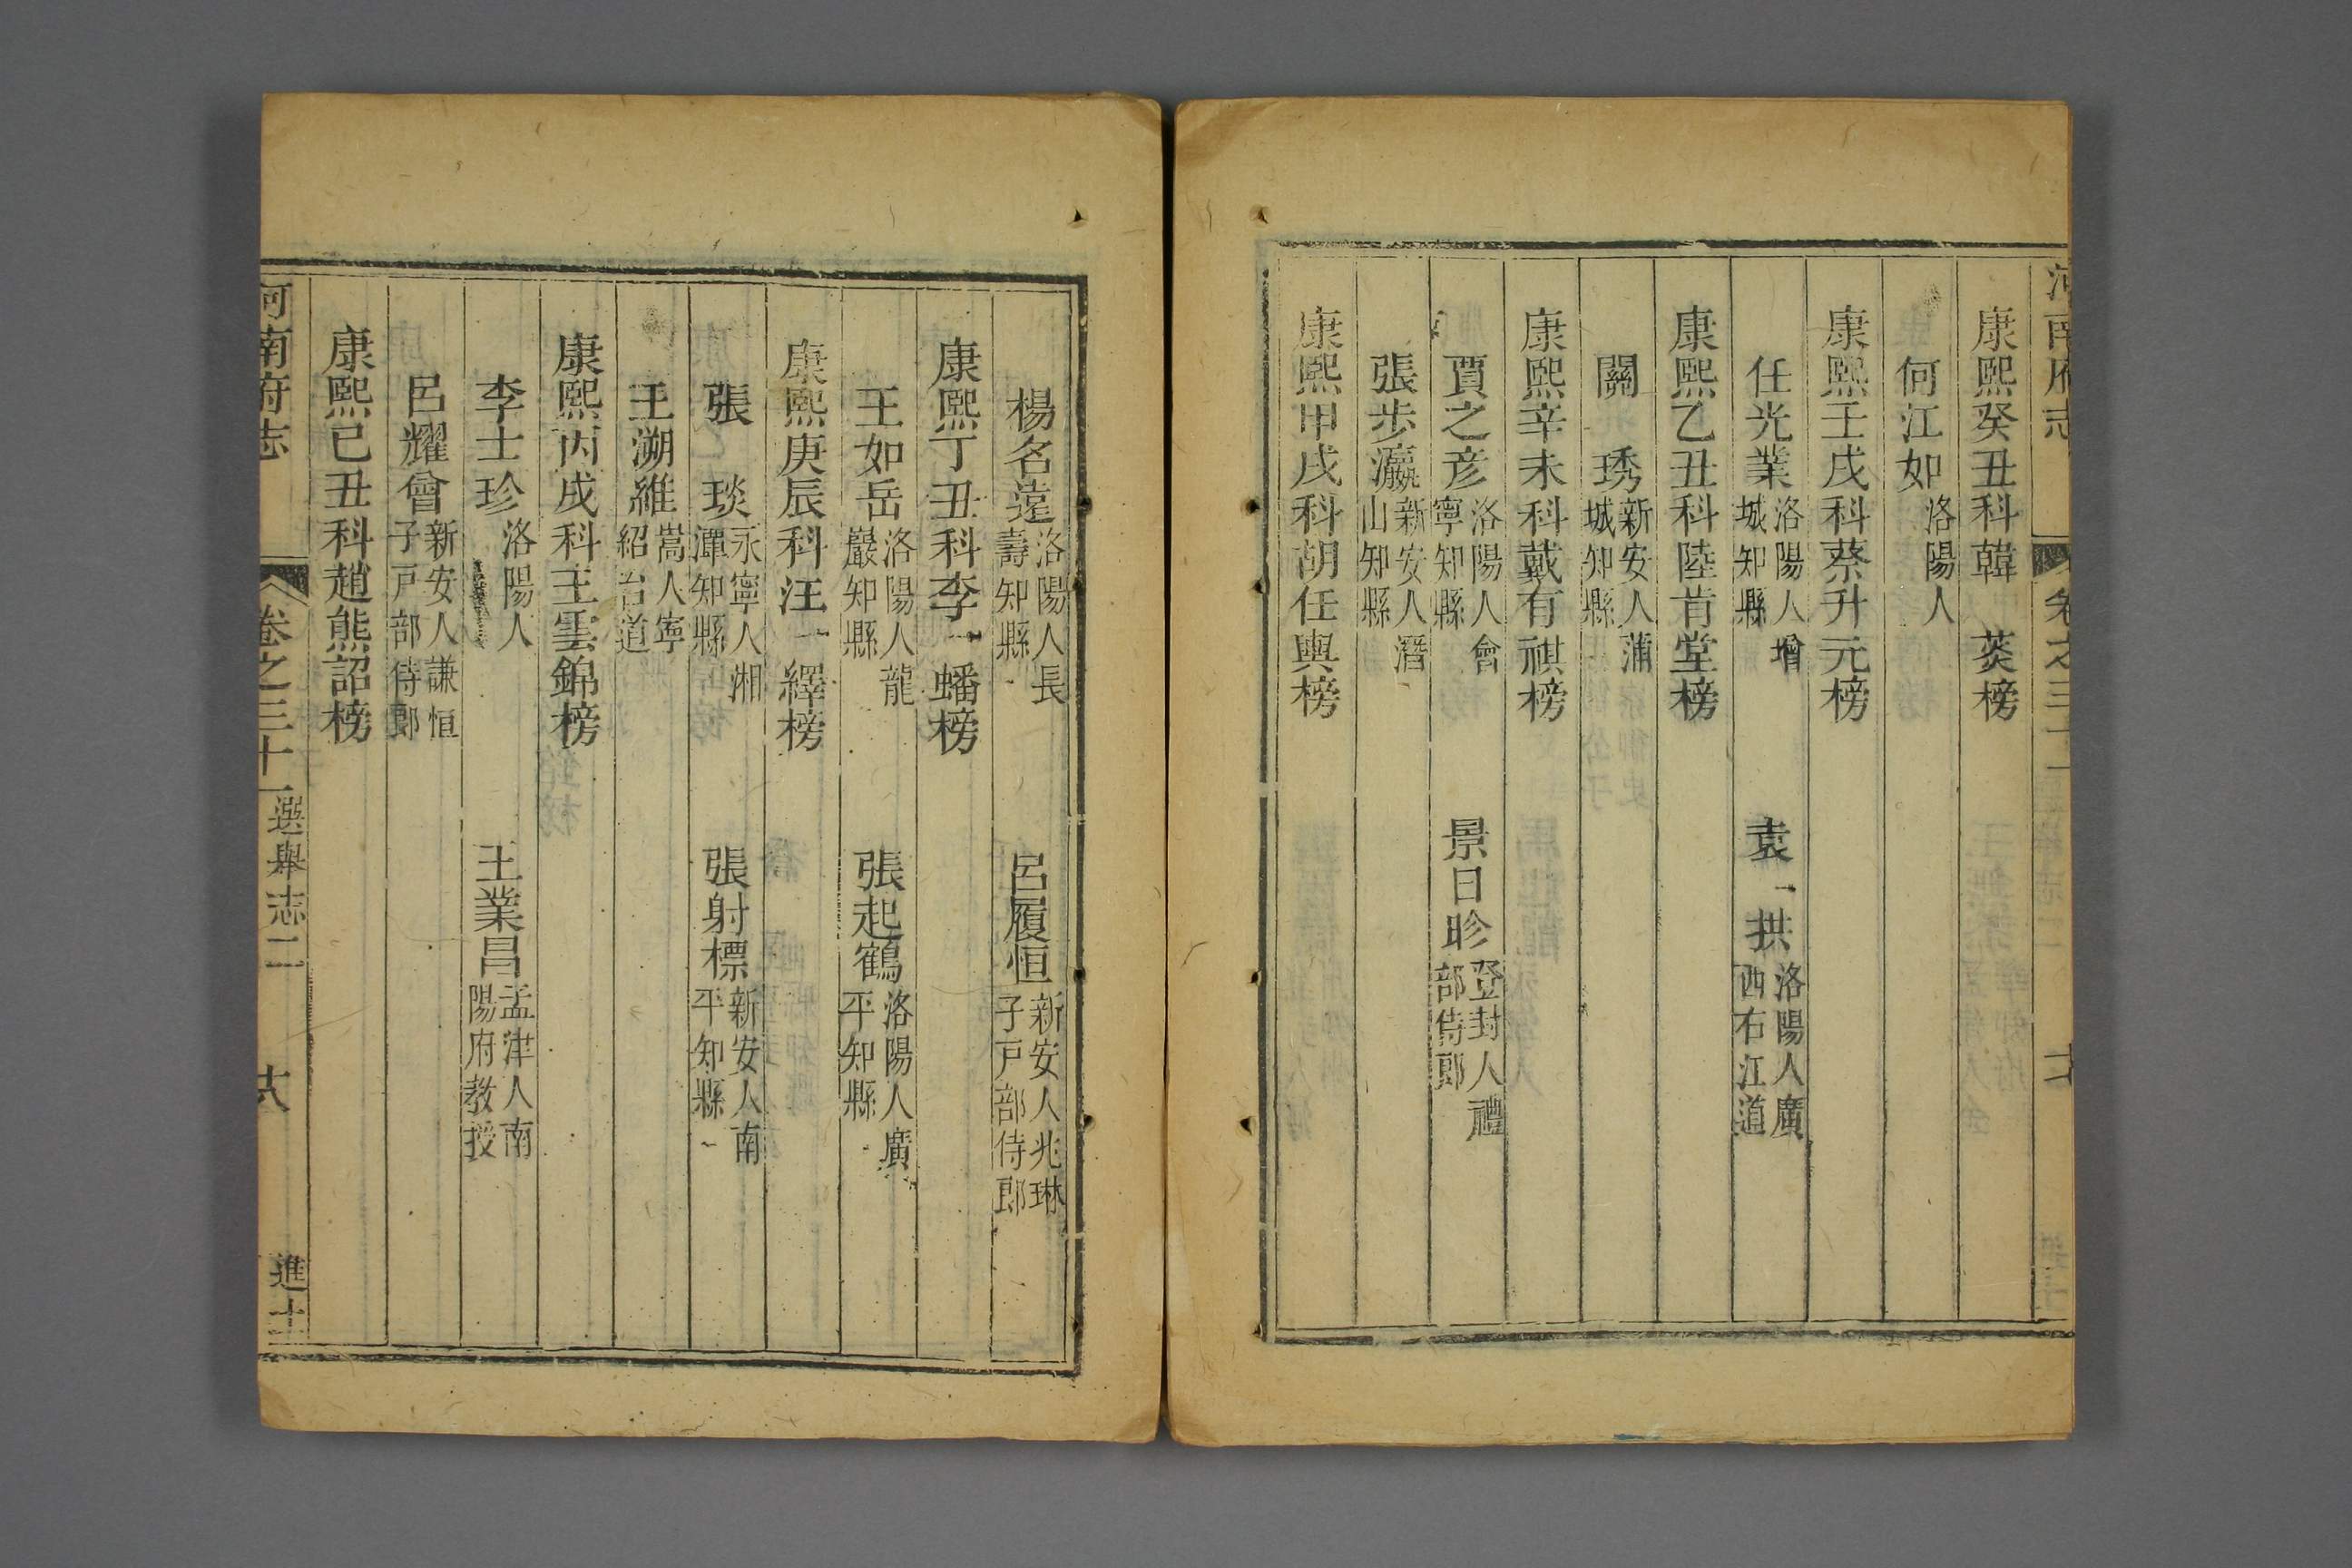 河南府志 卷之三十一
康熙癸丑科韓菼榜
何江如 洛陽人
康熙壬戌科蔡升元榜
任光業 洛陽人增城知縣 袁拱 洛陽人廣西右江道
康熙乙丑科陸肯堂榜
關琇 新安人蒲城知縣
康熙辛未科戴有祺榜
賈之彥 洛陽人會寧知縣 景日昣 登封人禮部侍郎
張步瀛 新安人潛山知縣
康熙甲戌科胡任輿榜
楊名遠 洛陽人長壽知縣 呂履恒 新安人兆琳子戸部侍郎
康熙丁丑科李蟠榜
王如岳 洛陽人龍巖知縣 張起鶴 洛陽人廣平知縣
康熙庚辰科汪繹榜
張琰 永寧人湘潭知縣 張射標 新安人南平知縣
王溯維 嵩人寧紹台道
康熙丙戌科王雲錦榜
李士珍 洛陽人 王業昌 孟津人南陽府教授
呂耀曾 新安人謙恒子戸部侍郎
康熙己丑科趙熊詔榜
河南府志 卷之三十一 選舉志二 十八 進士